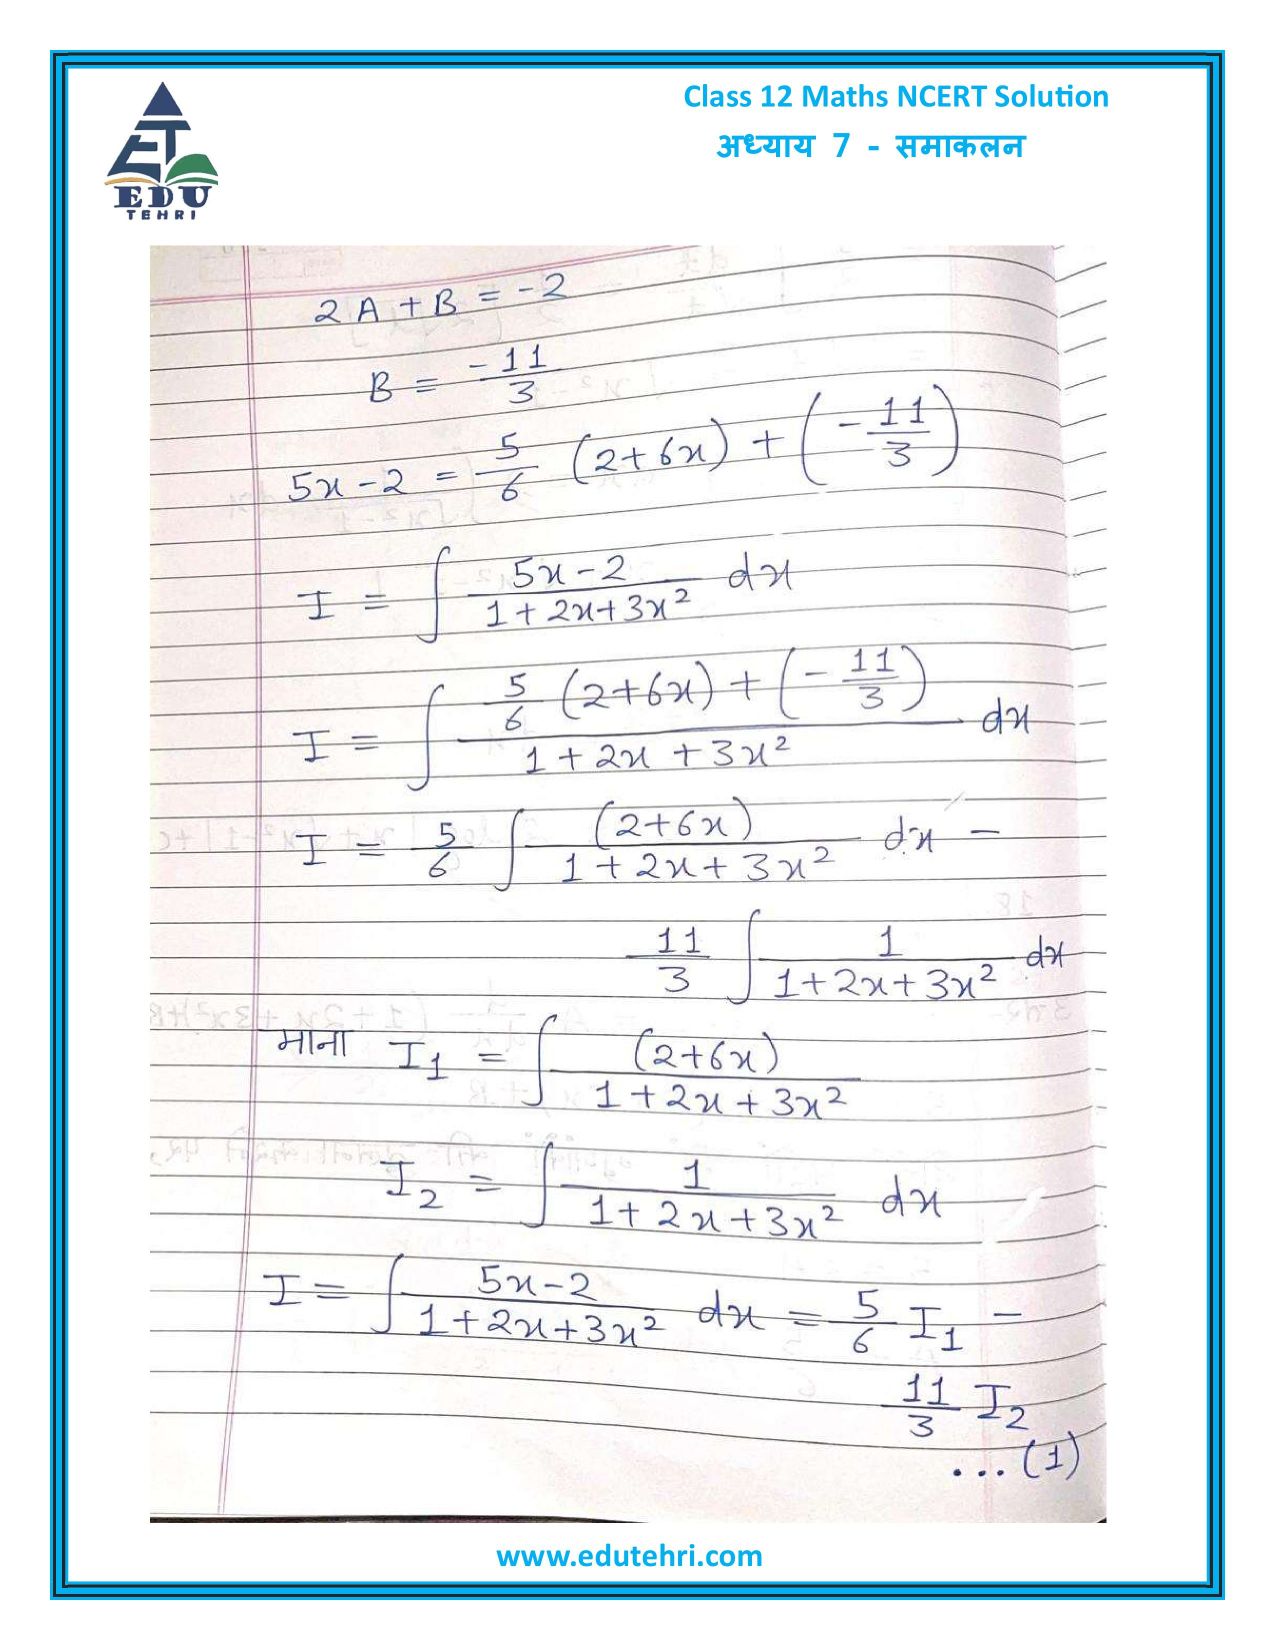 Class 12 Maths NCERT Solution
अध्याय 7 - समाकलन
EDU
TEHRI
2A + B = -2
B = -11/3
5x - 2 = 5/6 (2+6x) + (-11/3)
I = ∫ 5x-2 / 1+2x+3x² dx
I = ∫ 5/6 (2+6x) + (-11/3) / 1+2x+3x² dx
I = 5/6 ∫ (2+6x) / 1+2x+3x² dx -
11/3 ∫ 1 / 1+2x+3x² dx
माना I₁ = ∫ (2+6x) / 1+2x+3x²
I₂ = ∫ 1 / 1+2x+3x² dx
I = ∫ 5x-2 / 1+2x+3x² dx = 5/6 I₁ -
11/3 I₂
...(1)
www.edutehri.com